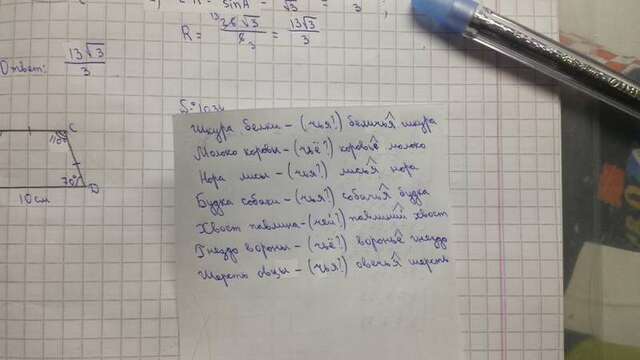 R = 13 26√3 / 6 3 = 13√3 / 3
Ответ: 13√3 / 3
C
110°
70°
D
10 см
Шкура белки – (чья?) беличья шкура
Молоко коровы – (чьё?) коровье молоко
Нора лисы – (чья?) лисья нора
Будка собаки – (чья?) собачья будка
Хвост павлина – (чей?) павлиний хвост
Гнездо вороны – (чьё?) воронье гнездо
Шерсть овцы – (чья?) овечья шерсть